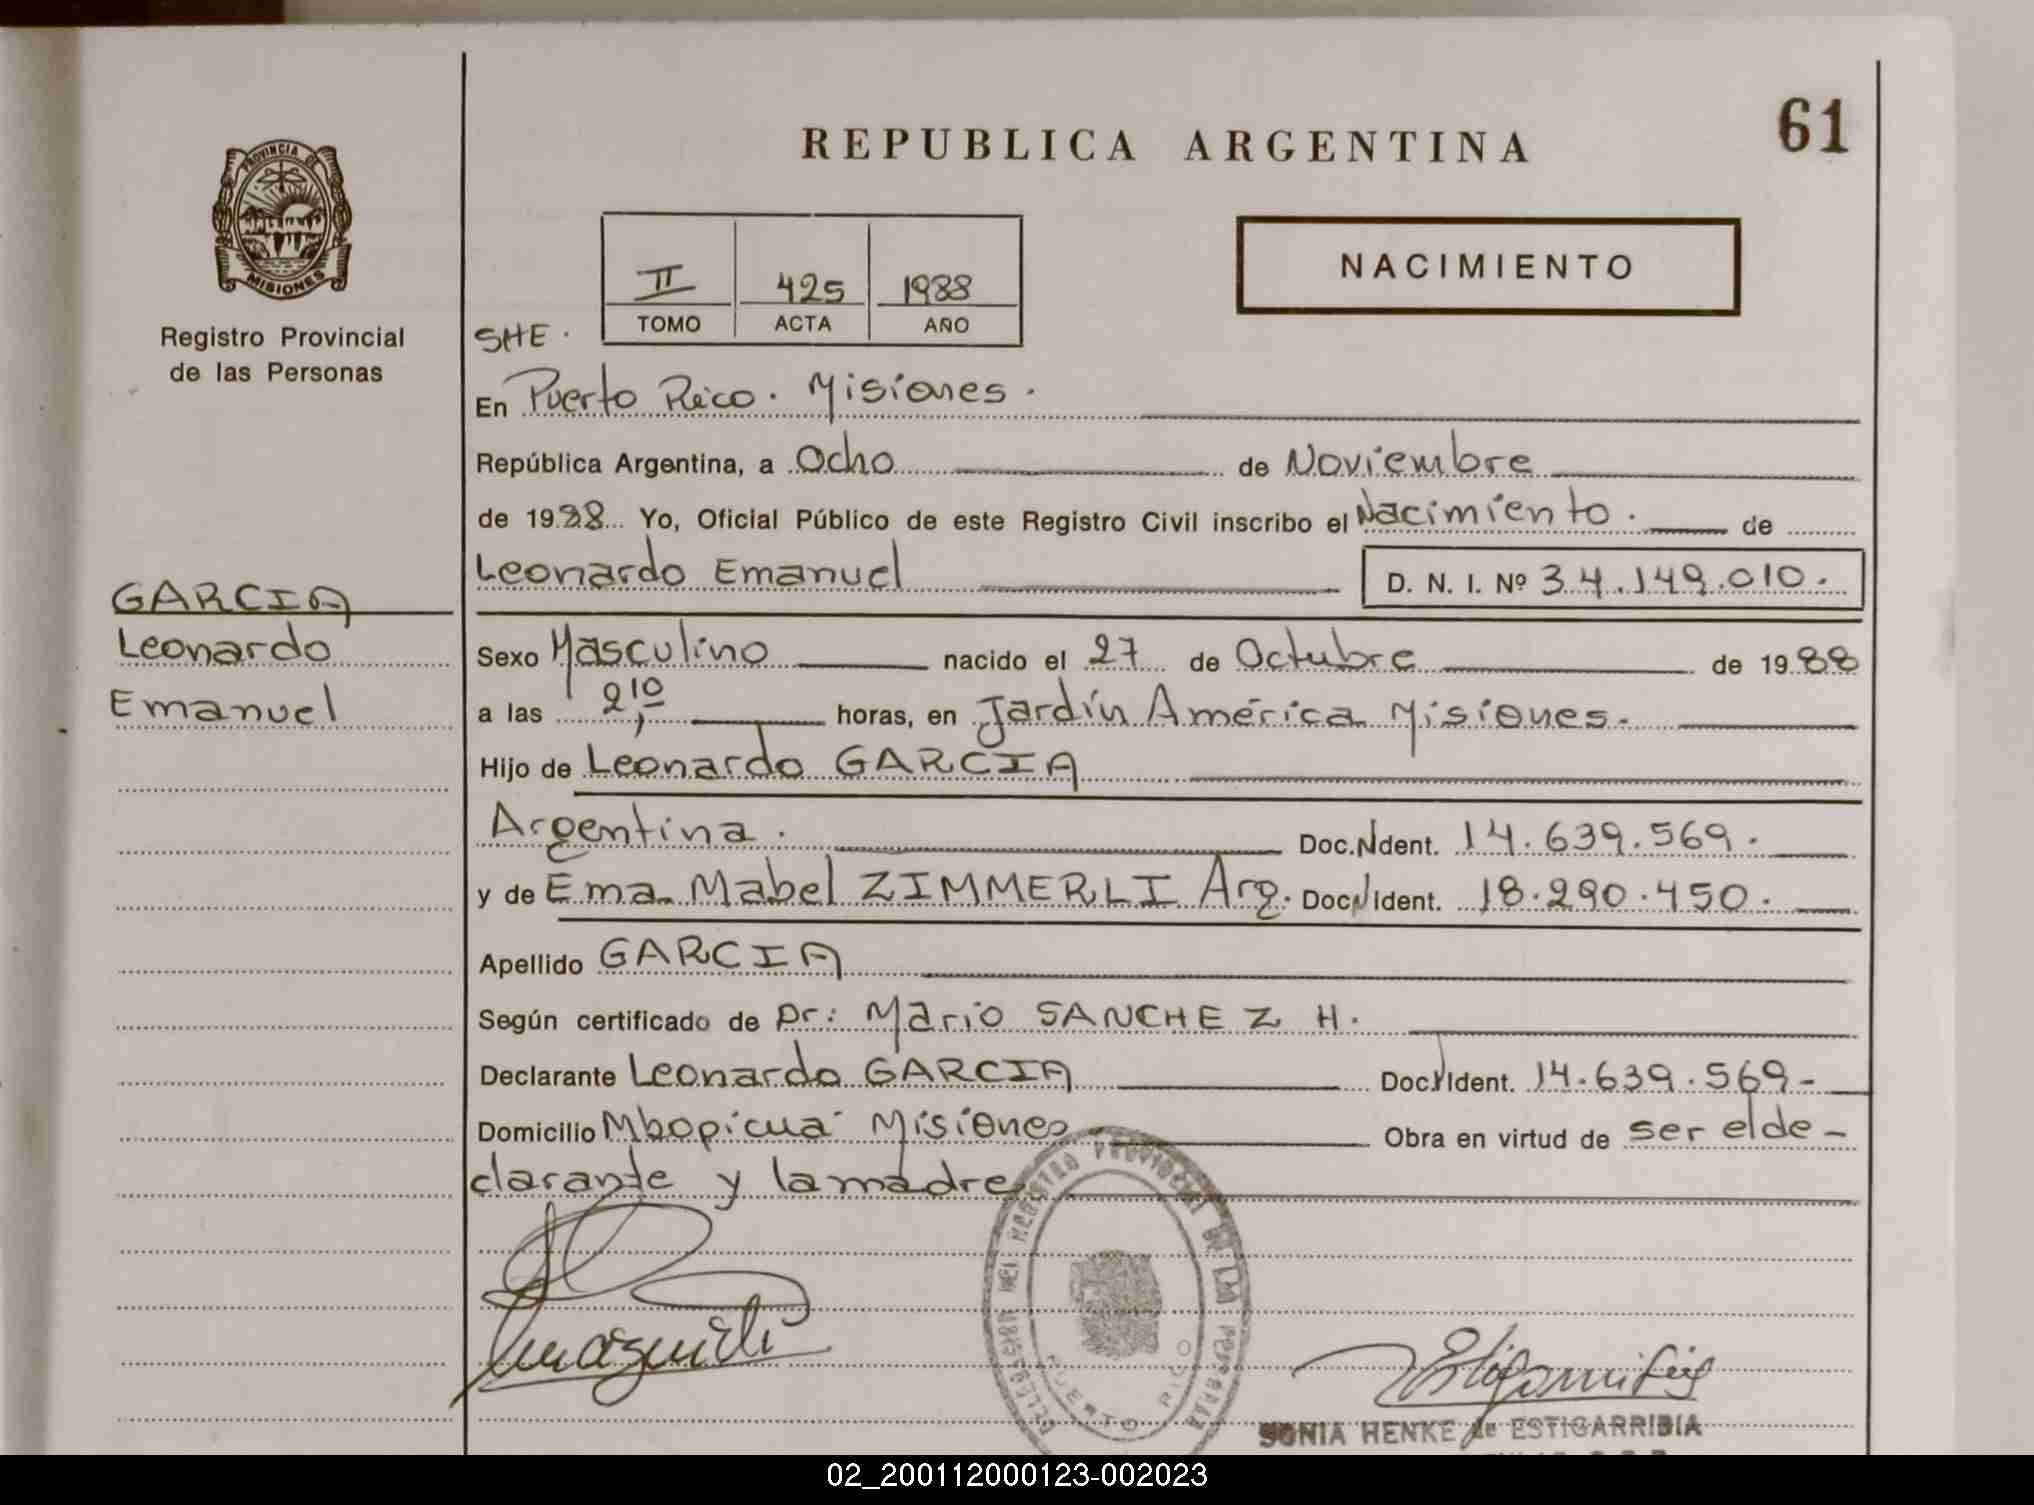 61
REPUBLICA ARGENTINA
PROVINCIA DE
MISIONES
Registro Provincial
de las Personas
II 425 1988
TOMO ACTA AÑO
NACIMIENTO
SHE.
En Puerto Rico. Misiones.
República Argentina, a Ocho de Noviembre
de 1988 Yo, Oficial Público de este Registro Civil inscribo el Nacimiento. de
Leonardo Emanuel D. N. I. Nº 34.149.010.
GARCIA
Leonardo
Emanuel
Sexo Masculino nacido el 27 de Octubre de 1988
a las 2,10 horas, en Jardín América Misiones.
Hijo de Leonardo GARCIA
Argentina. Doc.Ndent. 14.639.569.
y de Ema Mabel ZIMMERLI Arg. Doc.Ident. 18.290.450.
Apellido GARCIA
Según certificado de Dr: Mario SANCHEZ H.
Declarante Leonardo GARCIA Doc.Ident. 14.639.569-
Domicilio Mbopicua Misiones Obra en virtud de ser el de-
clarante y la madre
REGISTRO PROVINCIAL DE LAS PERSONAS
PUERTO RICO
SONIA HENKE de ESTIGARRIBIA
02_200112000123-002023